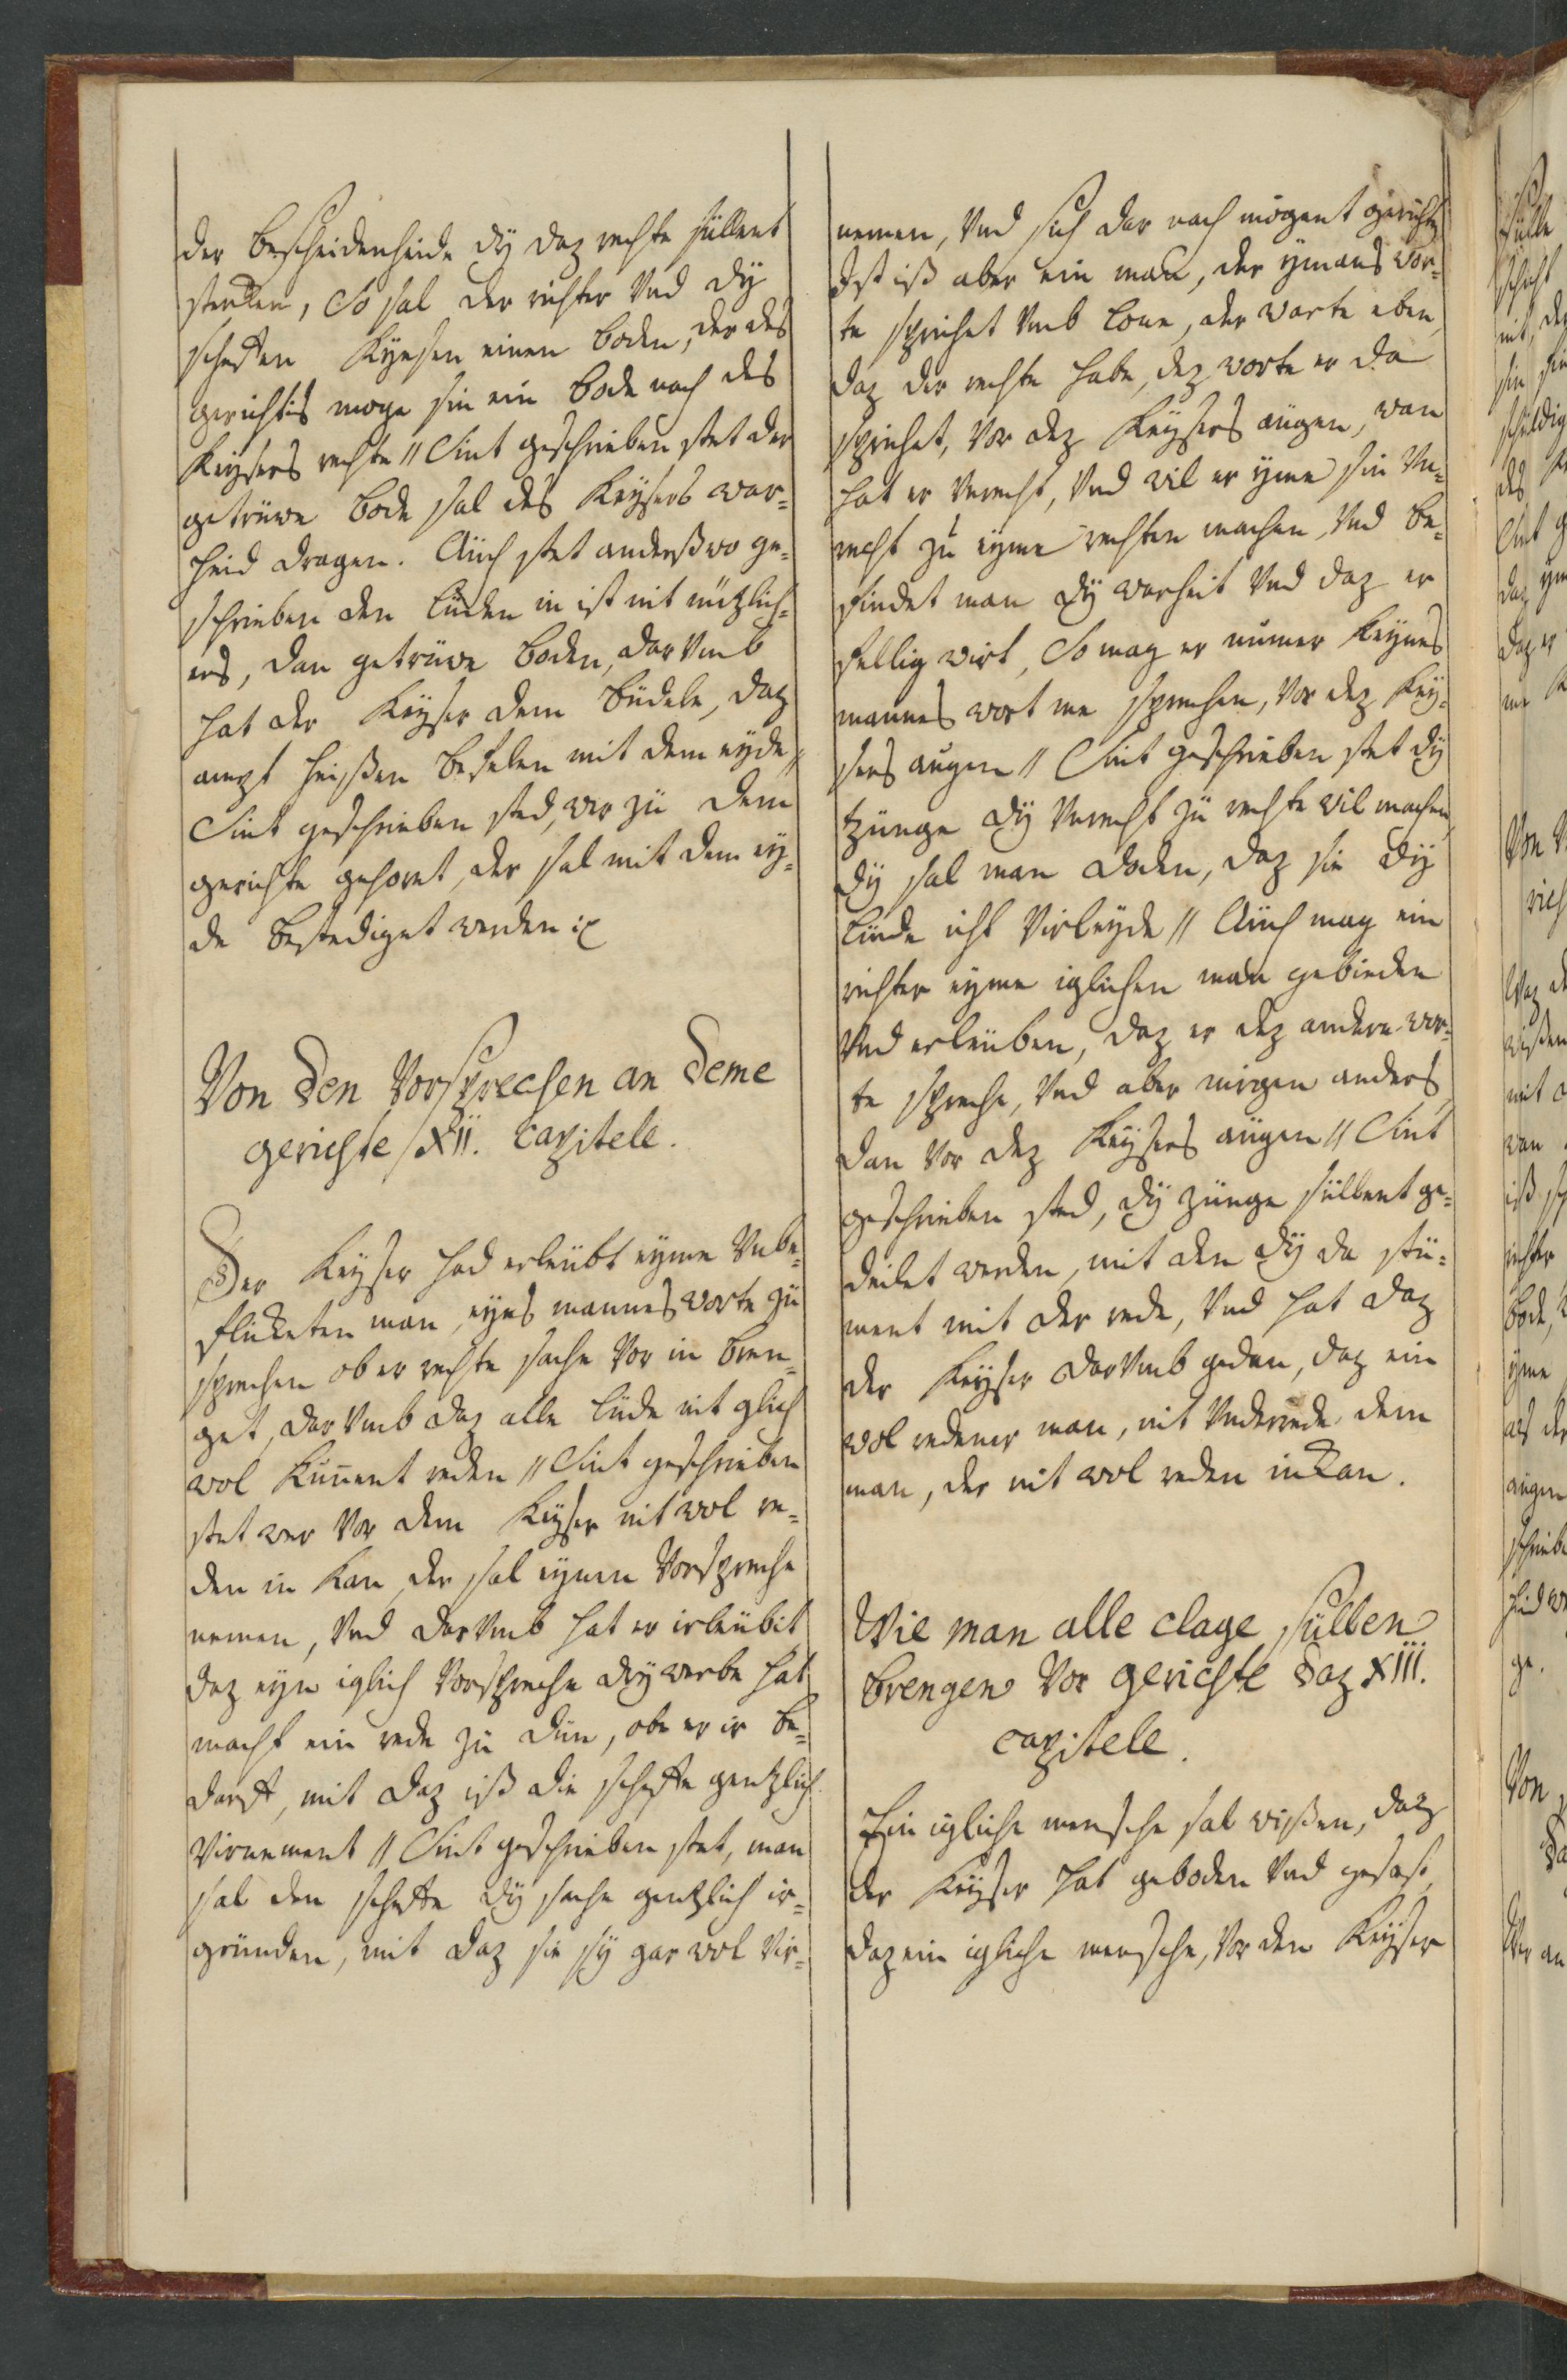 der bescheidenheide dÿ daz rechte süllent
sterken, So sal der richter Vnd dÿ
scheffen Kÿesen einen boden, der des
gerichtis moge sin ein bode nach des
Keÿsers rechte // Sint geschrieben stet der
getrüwe bode sal des Keÿsers war=
heid dragen. Auch stet anderßwo ge=
schrieben den lüden in ist nit nützlich=
ers, dan getrüwe boden, dar Vmb
hat der Keÿser dem büdele, daz
ampt heißen befelen mit dem eÿde //
Sint geschrieben sted, wer zü dem
gerichte gehoret, der sal mit dem eÿ=
de bestediget werden
Von den Vorsprechen an deme
gerichte / XII. capitele.
Der Keÿser had erleubt eÿme Vnbe=
flecketen man, eÿns mannes worte zü
sprechen ob er rechte sache Vor in bren=
get, dar Vmb daz alle lüde nit glich
wol Kunnent reden // Sint geschrieben
stet wer Vor dem Keÿser nit wol re=
den in Kan, der sal eÿnen Vorspreche
nemen, Vnd dar Vmb hat er irleubit
daz eÿn iglich Vorspreche drÿ werbe hat
macht ein rede zü dün, obe er ir be=
darff, mit daz iß die scheffe gentzlich
Virnement // Sint geschrieben stet, man
sal den scheffe dÿ sache gentzlich ir=
gründen, mit daz sie sÿ gar wol Vir=
nemen, Vnd sich dar nach mögent gerichte
Ist iß aber ein man, der ÿmans wor=
te sprichet Vmb lone, der warte eben,
daz der rechte habe, dez worte er da
sprichet, Vor dez Keÿsers augen, wan
hat er Vnrecht, Vnd wil er ÿme sin Vn=
recht zü eÿme rechten machen, Vnd be=
findet man dÿ warheit Vnd daz er
fellig wirt, So mag er nümer Keÿnes
mannes wort me sprechen, Vor dez Keÿ=
sers augen // Sint geschrieben stet dÿ
zünge dÿ Vnrecht zü rechte wil machen,
dÿ sal man doden, daz sie dÿ
lüde icht Virleÿde // Auch mag ein
richter eÿme iglichen man gebieden
Vnd erleuben, daz er dez andern wor=
te spreche, Vnd aber nirgen anders,
dan Vor dez Keÿsers augen // Sint
geschrieben sted, dÿ zünge süllent ge=
deilet werden, mit den dÿ da stü=
ment mit der rede, Vnd hat daz
der Keÿser dar Vmb gedan, daz ein
wol redener man, nit Vnderrede dem
man, der nit wol reden in Kan.
Wie man alle clage süllen
brengen Vor gerichte daz XIII.
capitele.
Ein igliche mensche sal wißen, daz
der Keÿser hat geboden Vnd gesast,
daz ein igliche mensche, Vor den Keÿser